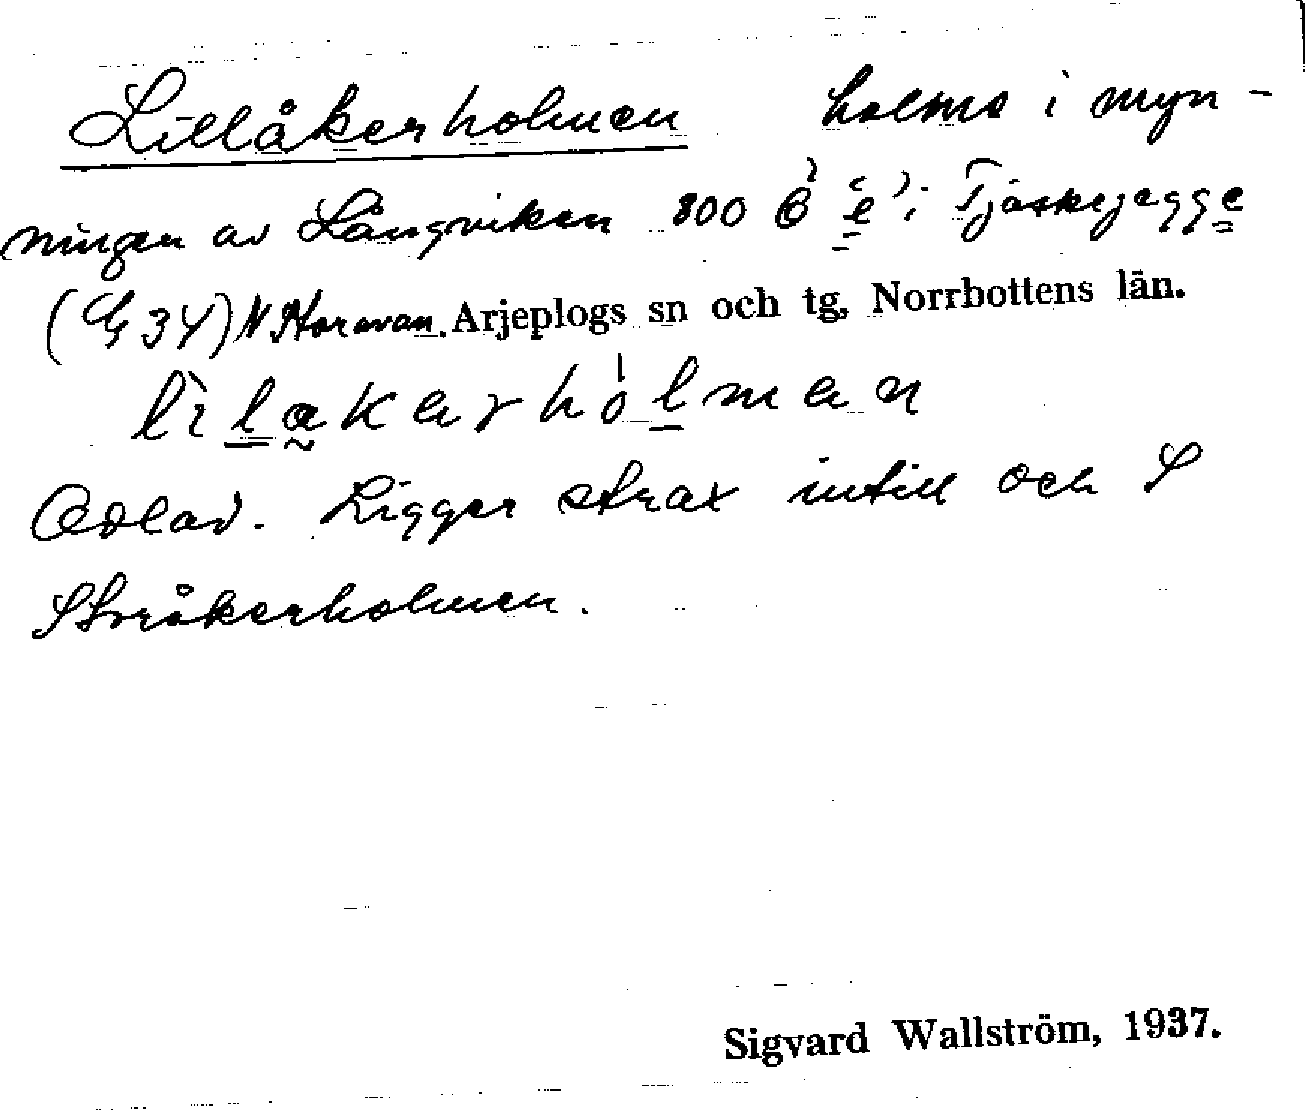 Lillåkerholmen holme i myn-
ningen av Långviken 800 Ö e i Tjåskejegge
(G 34) N Storavan. Arjeplogs sn och tg, Norrbottens län.
lìlakerhólmen
Odlad. Ligger strax intill och S
Storåkerholmen.
Sigvard Wallström, 1937.